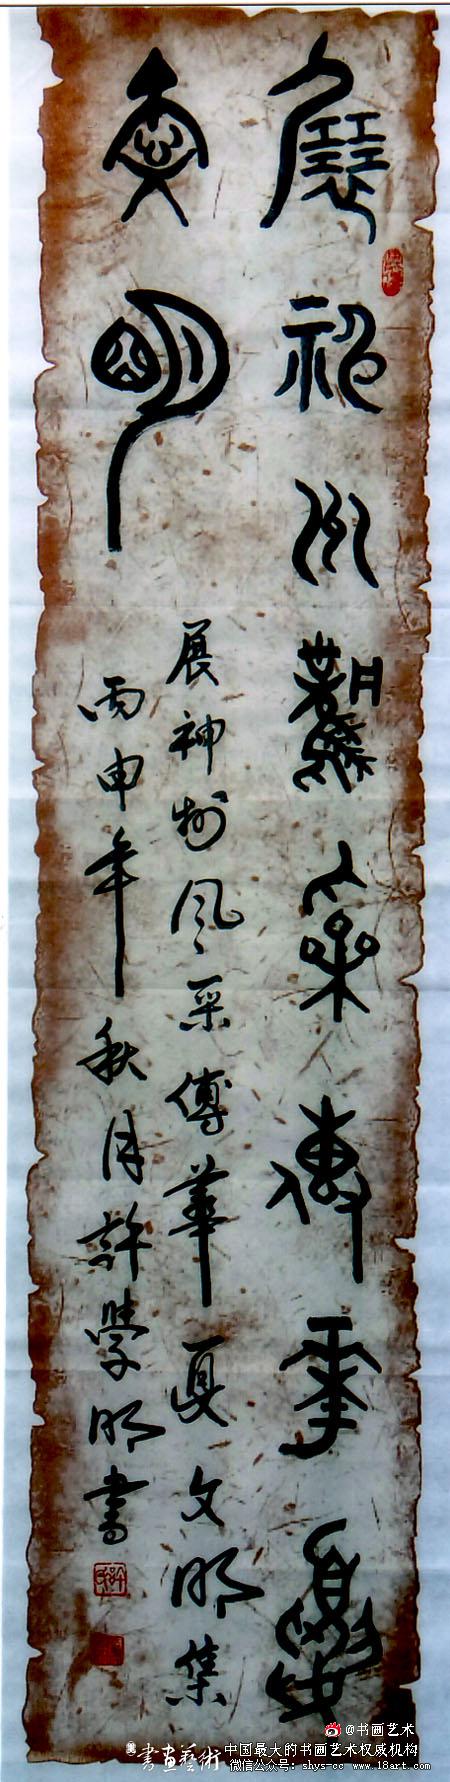 展神州風采傳華夏
文明
展神州风采傳華夏文明集
丙申年秋月許學明書
@书画艺术
書画藝術
中国最大的书画艺术权威机构
微信公众号：shys-cc www.18art.com